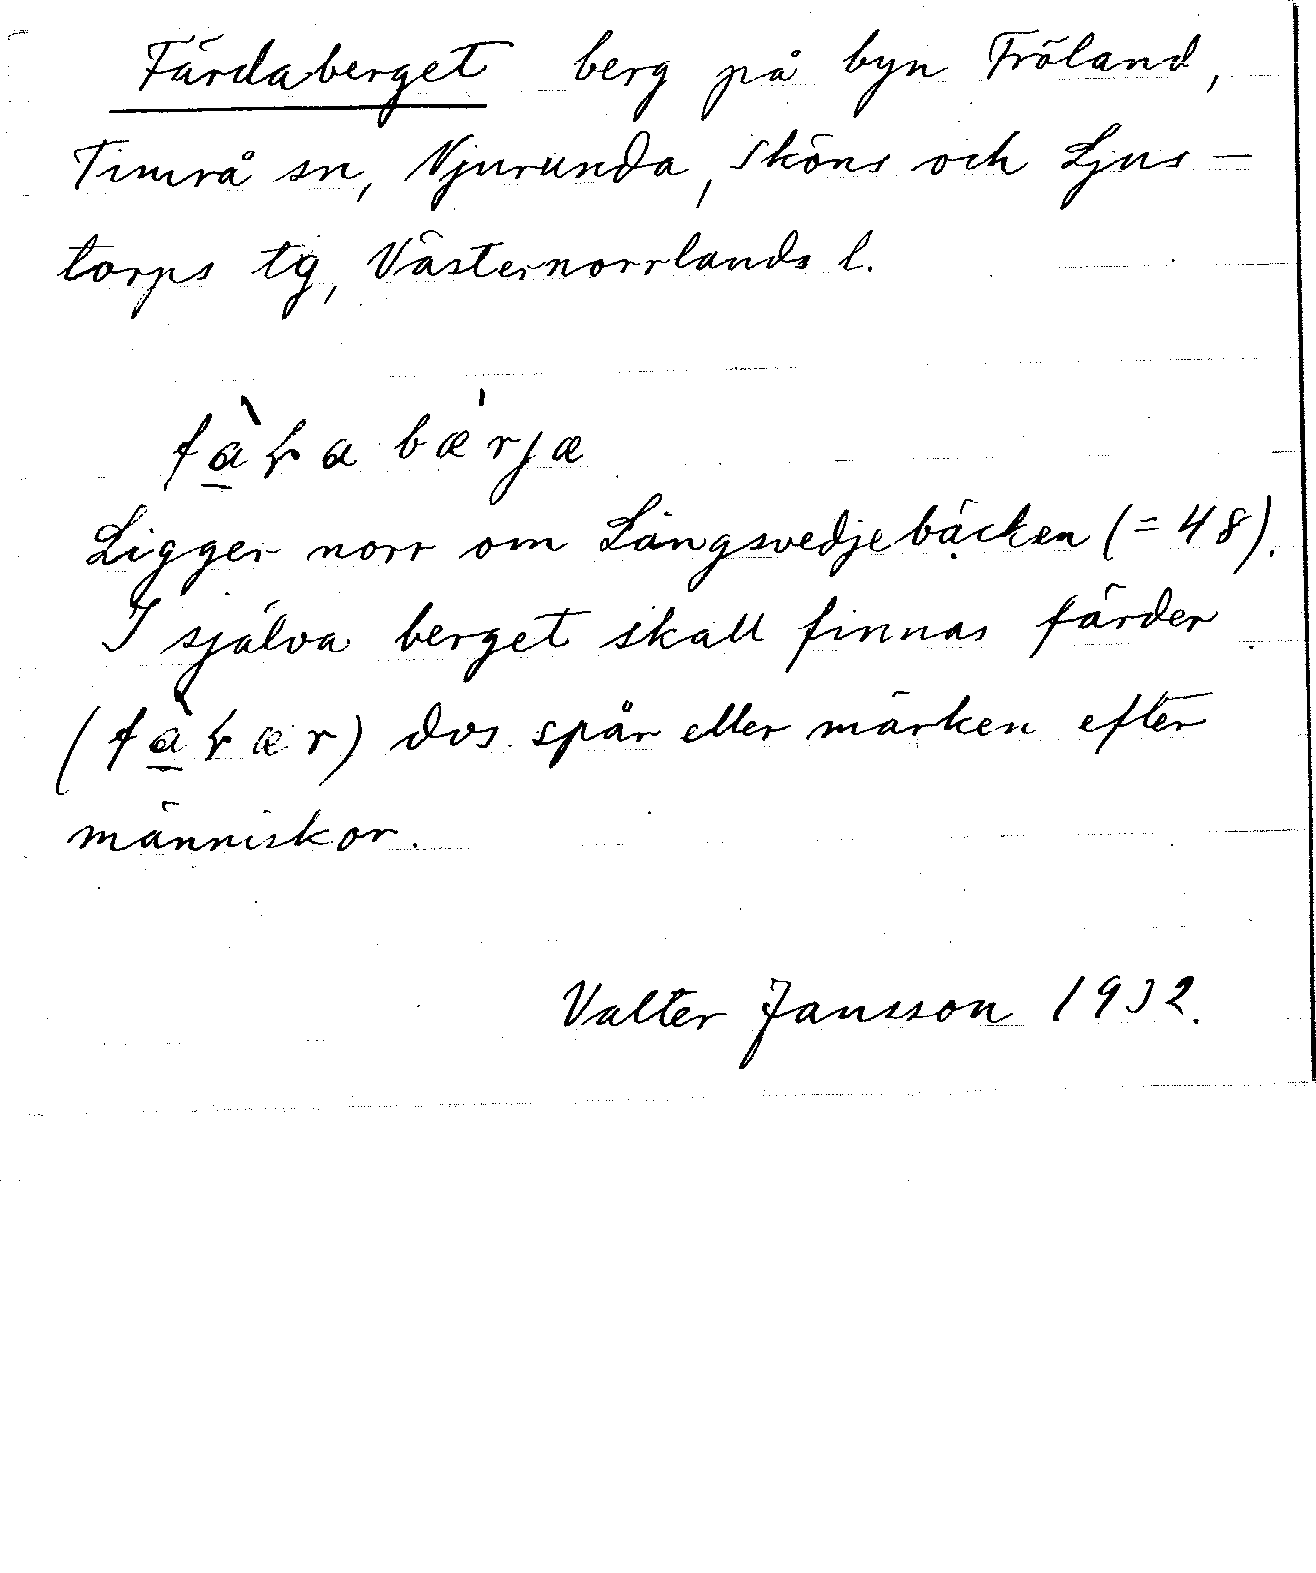 Färdaberget berg på byn Fröland,
Timrå sn, Njurunda, Sköns och Ljus-
torps tg, Västernorrlands l.
bæ'rjæ
Ligger norr om Långsvedjebäcken (=48).
I själva berget skall finnas färder
dvs. spår eller märken efter
människor.
Valter Jansson 1932.